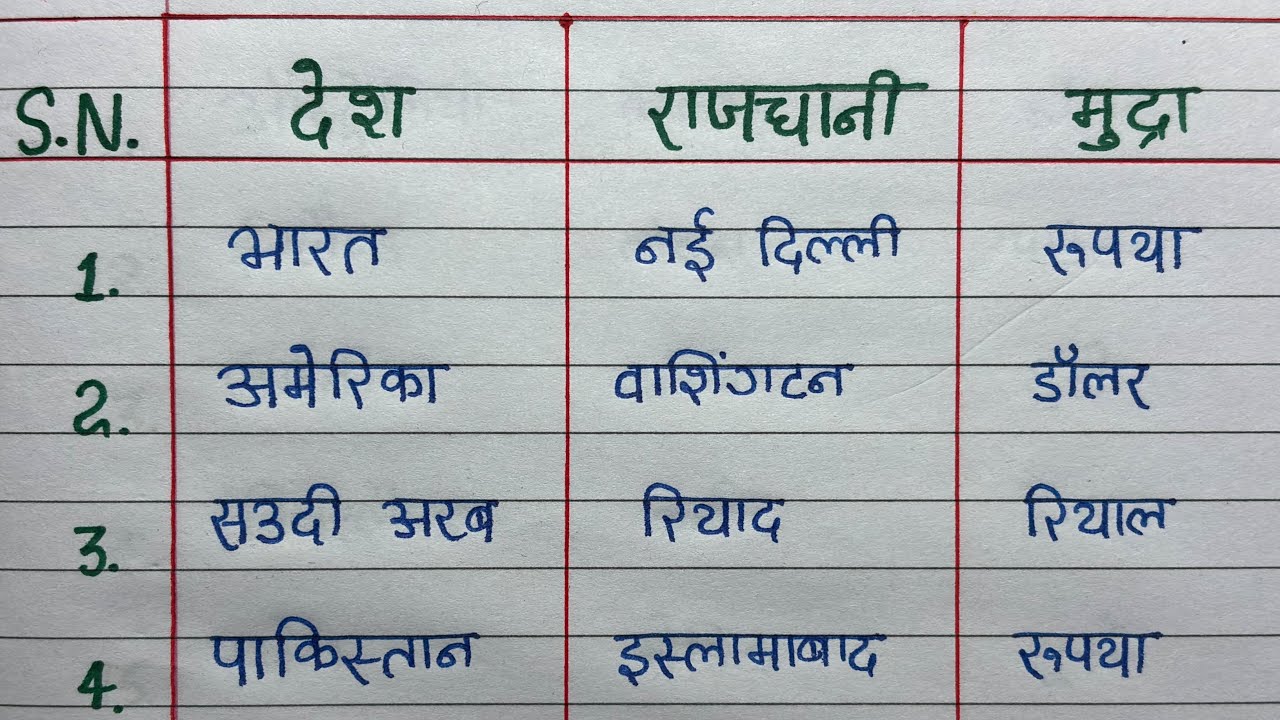 S.N. देश राजधानी मुद्रा
1. भारत नई दिल्ली रुपया
2. अमेरिका वाशिंगटन डॉलर
3. सउदी अरब रियाद रियाल
4. पाकिस्तान इस्लामाबाद रुपया